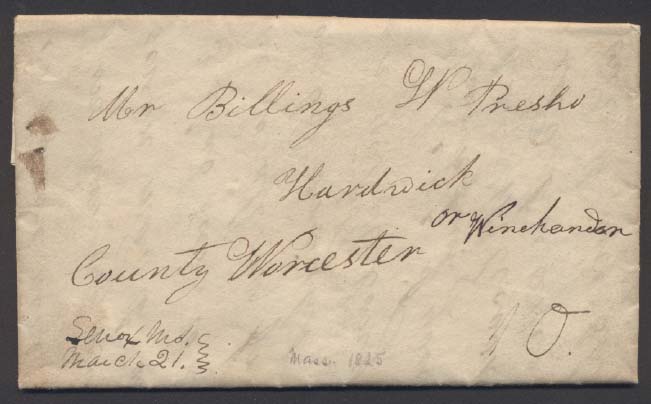 Mr Billings W Presho
Hardwick
or Winchendon
County Worcester
Lenox Ms.
March 21.
O.
Mass. 1825